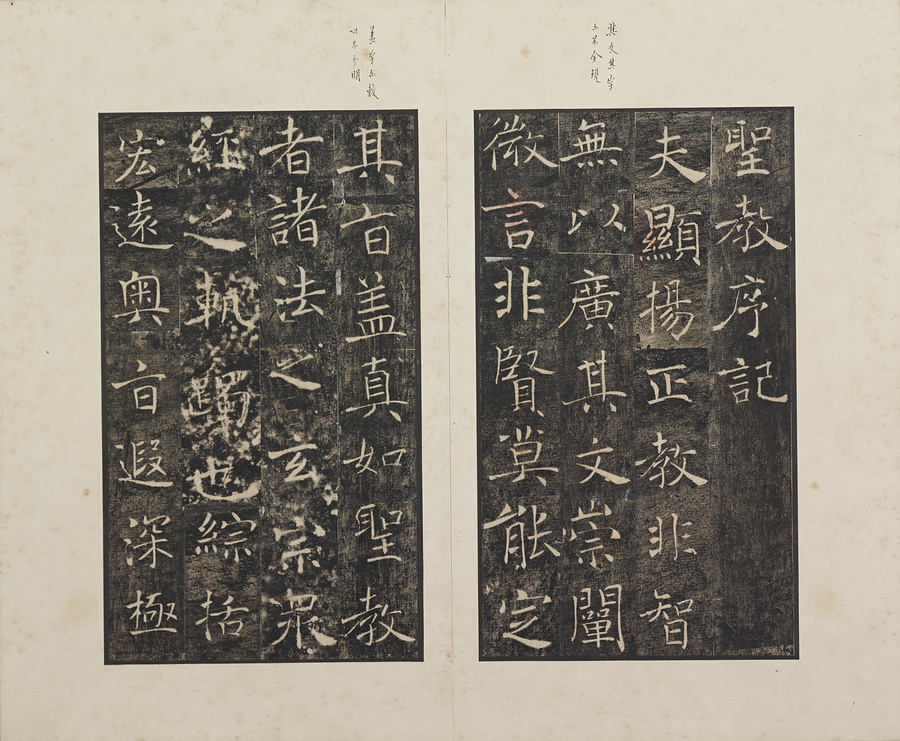 其文其字
聖教序記
夫顯揚正教非智
無以廣其文崇闡
微言非賢莫能定
盖字
其旨盖真如聖教
者諸法之玄宗衆
經之軌躅也綜括
宏遠奥旨遐深極